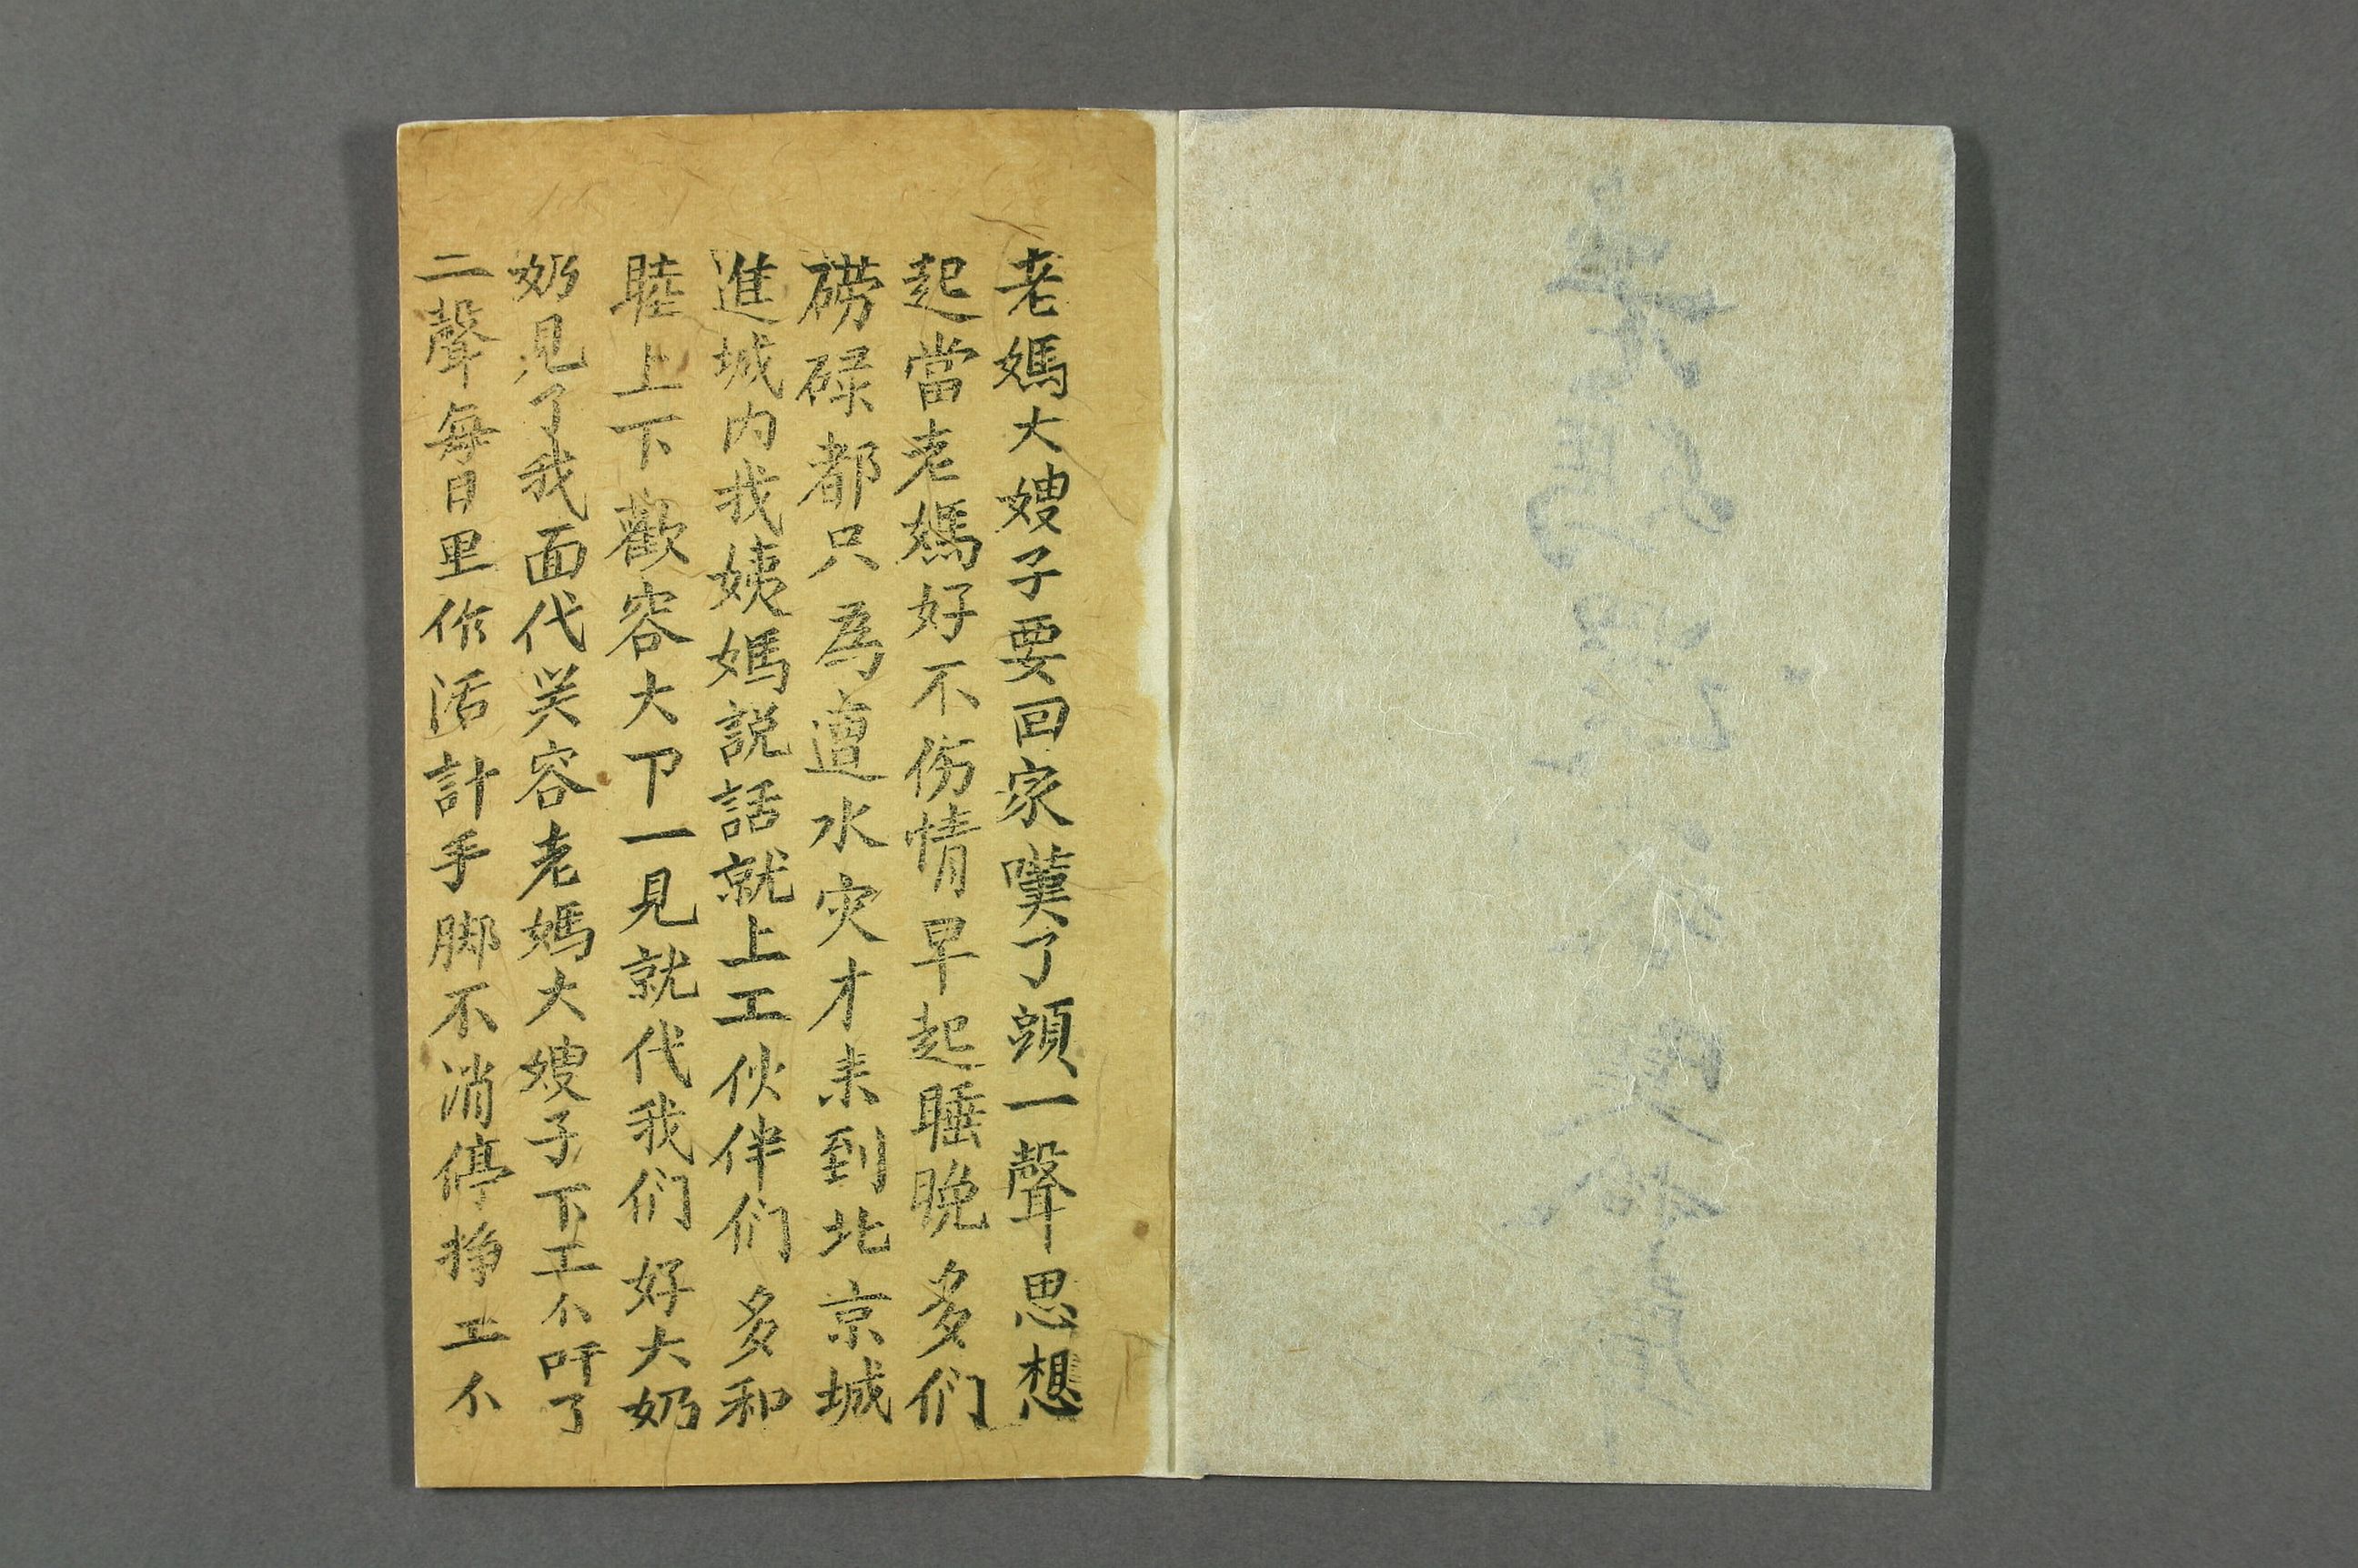 老媽大嫂子要回家嘆了頭一聲思想
起當老媽好不伤情早起睡晚多们
磱碌都只為遭水灾才来到北京城
進城内我姨媽説話就上工伙伴们多和
睦上下歡容大下一見就代我们好大奶
奶見了我面代笑容老媽大嫂子下工不吁了
二聲每日里作活計手脚不消停挣工不